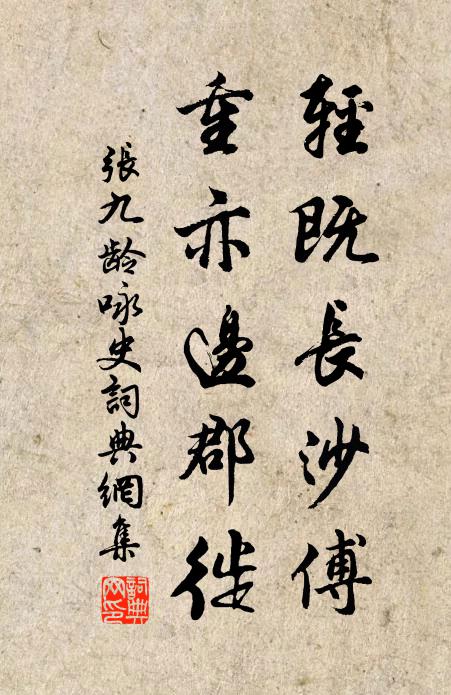 輕既長沙傅
重亦邊郡徙
張九龄咏史詞典網集
詞典网印